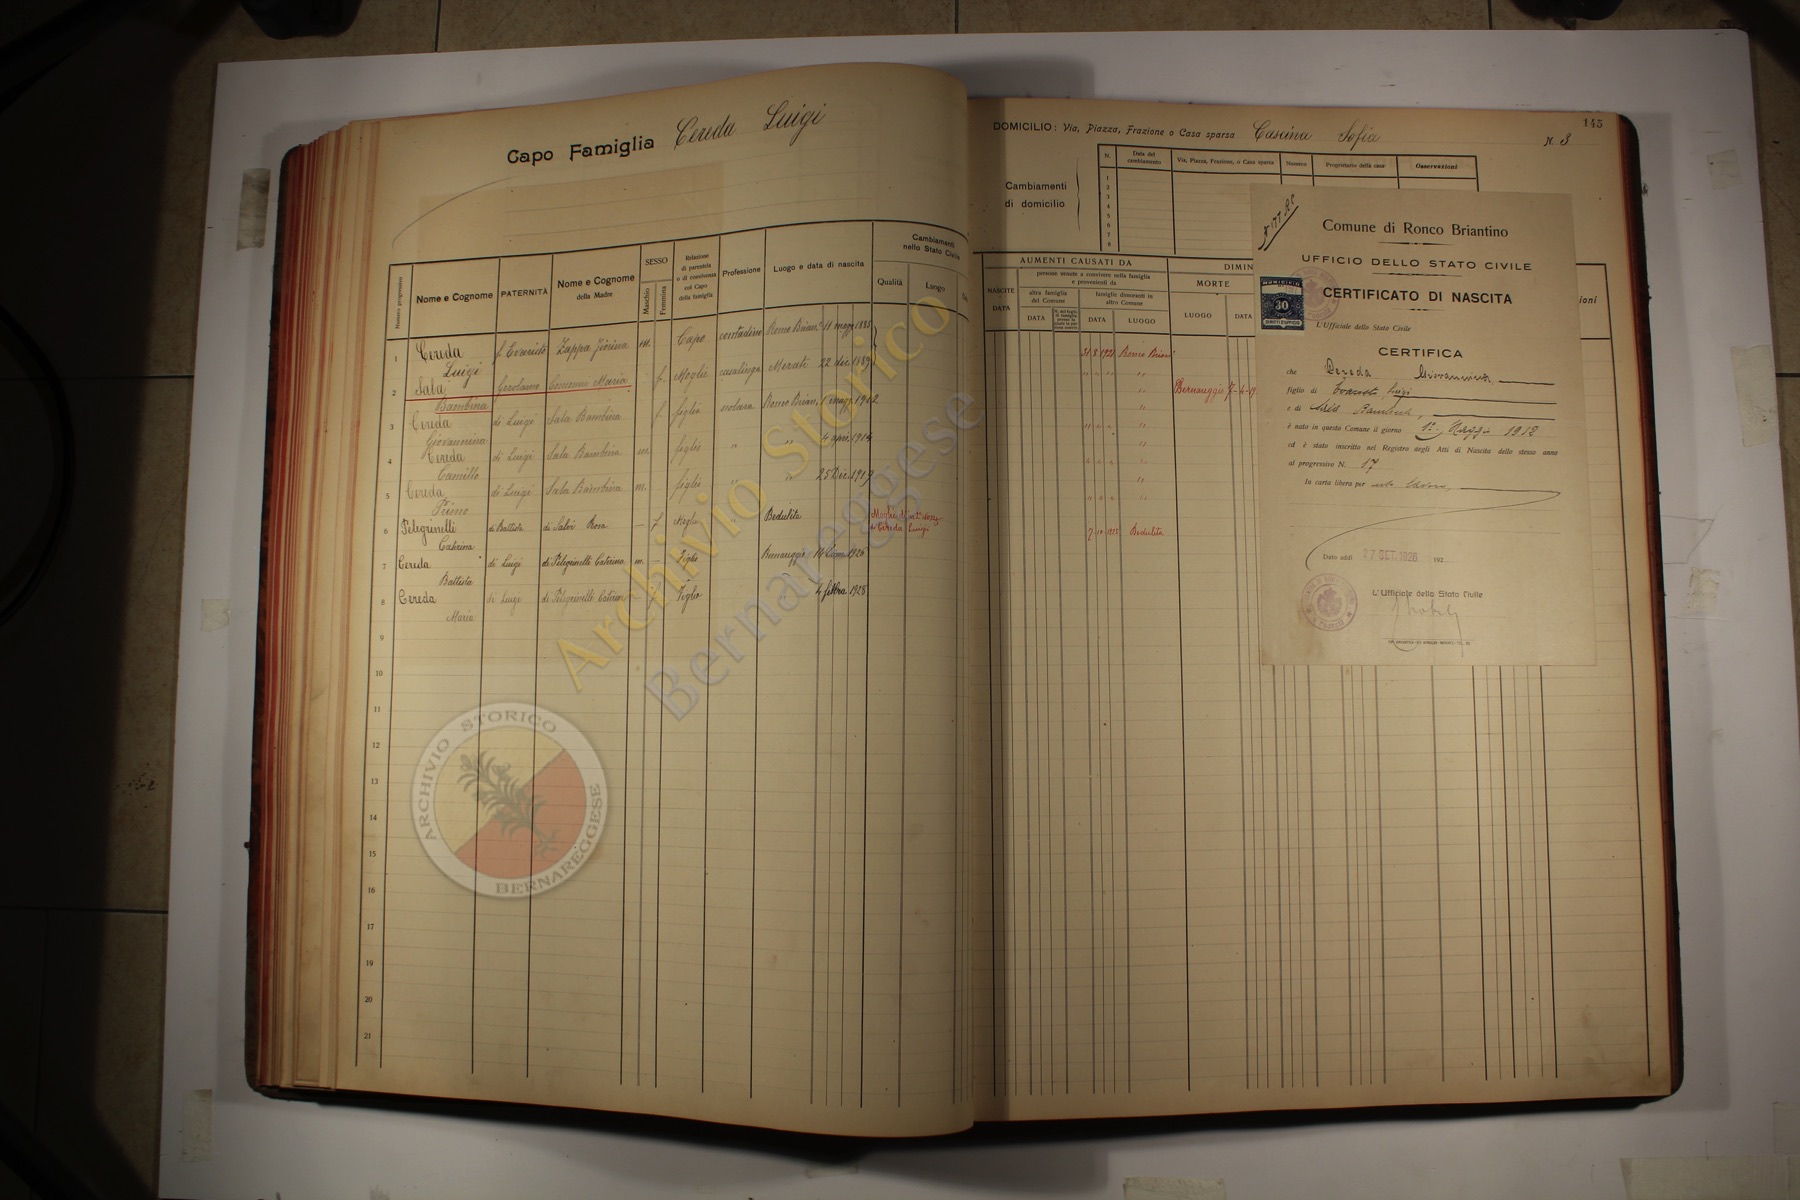 Capo Famiglia Cereda Luigi
Numero progressivo
Nome e Cognome
PATERNITÀ
Nome e Cognome della Madre
SESSO
Maschio
Femmina
Relazione di parentela o di convivenza col Capo della famiglia
Professione
Luogo e data di nascita
Cambiamenti nello Stato Civile
Qualità
Luogo
1 Cereda Luigi f. Evaristo Zappa m. Capo contadino Ronco Brian. 11 magg. 1885
2 Sala Bambina Gerolamo Maria f. Moglie casalinga Merate 22 dic. 1889
3 Cereda Giovannina di Luigi Sala Bambina f. figlia Ronco Brian. 1 magg. 1912
4 Cereda Camillo di Luigi Sala Bambina m. figlio " " 4 apr. 1914
5 Cereda Primo di Luigi Sala Bambina m. figlio " " 25 Dic. 1917
6 Pelegrinelli Caterina di Battista di Salvi Rosa - f. Moglie " Bedulita
Moglie di in 2e nozze a Cereda Luigi
7 Cereda Battista di Luigi di Pelegrinelli Caterina m. - Figlio Bernareggio 1926
8 Cereda Maria di Luigi di Pelegrinelli Caterina Figlia " 4 febbra 1928
9
10
11
12
13
14
15
16
17
18
19
20
21
DOMICILIO: Via, Piazza, Frazione o Casa sparsa Cascina Sofia N. 3
145
Cambiamenti di domicilio
N.
Data del cambiamento
Via, Piazza, Frazione, o Casa sparsa
Numero
Proprietario della casa
Osservazioni
1
2
3
4
5
6
7
8
AUMENTI CAUSATI DA
NASCITE
DATA
persone venute a convivere nella famiglia e provenienti da
altra famiglia del Comune
DATA
famiglie dimoranti in altro Comune
DATA
LUOGO
DIMIN
MORTE
LUOGO
DATA
ioni
31.8.1921 Ronco Brian.
" " " "
Bernareggio 7-4-19
" " " "
" " " "
" " " "
7-10-1925 Bedulita
Comune di Ronco Briantino
UFFICIO DELLO STATO CIVILE
MUNICIPIO
30
CERTIFICATO DI NASCITA
L'Ufficiale dello Stato Civile
CERTIFICA
che Cereda Giovannina,
figlio di Evaristo Luigi
e di Sala Bambina,
è nato in questo Comune il giorno 1o. Maggio 1912
ed è stato inscritto nel Registro degli Atti di Nascita dello stesso anno
al progressivo N. 17
In carta libera per
Dato addì 27 OTT. 1926 192
L'Ufficiale dello Stato Civile
Archivio Storico
Bernareggese
ARCHIVIO STORICO
BERNAREGGESE